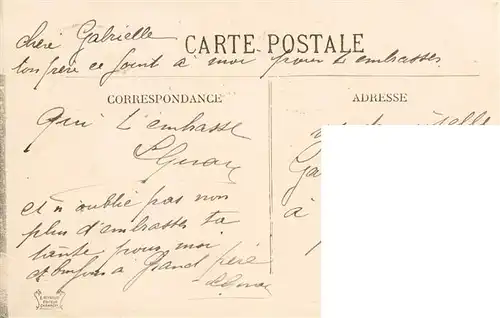 chère Gabrielle
CARTE POSTALE
ton père ce joint à moi pour t embrasser
CORRESPONDANCE
ADRESSE
Qui t'embrasse
et n'oublie pas non
plus d'embrasser ta
tante pour moi
et bonjour à Grand père
Ga
à